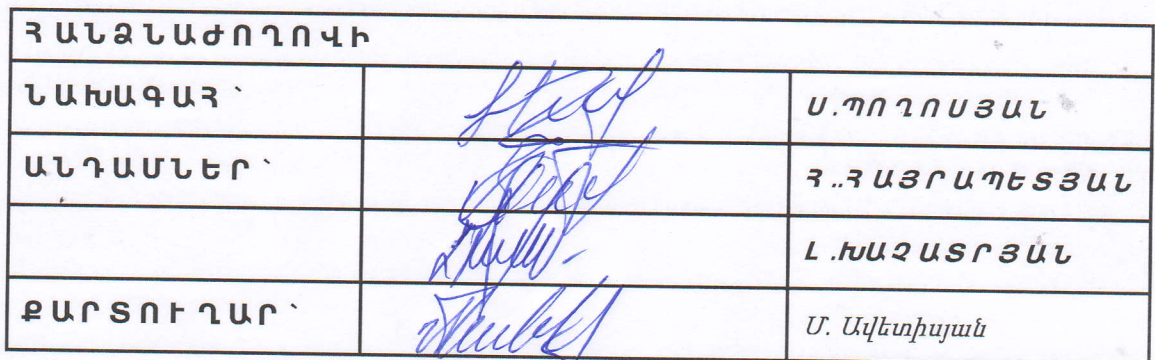 ՀԱՆՁՆԱԺՈՂՈՎԻ
ՆԱԽԱԳԱՀ՝ Ս.ՊՈՂՈՍՅԱՆ
ԱՆԴԱՄՆԵՐ՝ Հ..ՀԱՅՐԱՊԵՏՅԱՆ
Լ.ԽԱՉԱՏՐՅԱՆ
ՔԱՐՏՈՒՂԱՐ՝ Մ. Ավետիսյան